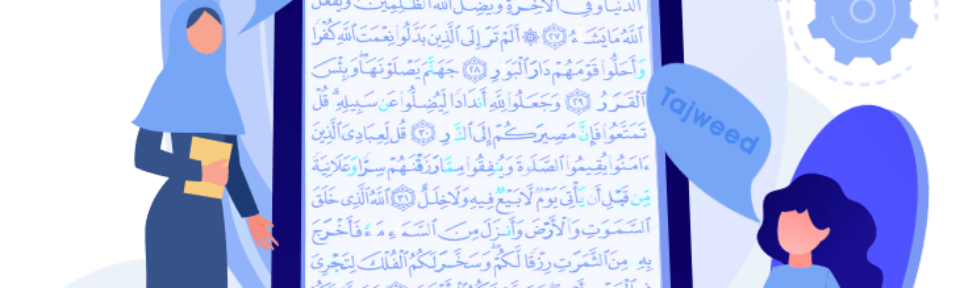 الدُّنْيَا وَفِي الْآخِرَةِ وَيُضِلُّ اللَّهُ الظَّالِمِينَ وَيَفْعَلُ
اللَّهُ مَا يَشَاءُ ﴿٢٧﴾ ۞ أَلَمْ تَرَ إِلَى الَّذِينَ بَدَّلُوا نِعْمَتَ اللَّهِ كُفْرًا
وَأَحَلُّوا قَوْمَهُمْ دَارَ الْبَوَارِ ﴿٢٨﴾ جَهَنَّمَ يَصْلَوْنَهَا وَبِئْسَ
الْقَرَارُ ﴿٢٩﴾ وَجَعَلُوا لِلَّهِ أَنْدَادًا لِيُضِلُّوا عَنْ سَبِيلِهِ ۗ قُلْ
تَمَتَّعُوا فَإِنَّ مَصِيرَكُمْ إِلَى النَّارِ ﴿٣٠﴾ قُلْ لِعِبَادِيَ الَّذِينَ
ءَامَنُوا يُقِيمُوا الصَّلَوٰةَ وَيُنْفِقُوا مِمَّا رَزَقْنَٰهُمْ سِرًّا وَعَلَانِيَةً
مِنْ قَبْلِ أَنْ يَأْتِيَ يَوْمٌ لَا بَيْعٌ فِيهِ وَلَا خِلَٰلٌ ﴿٣١﴾ اللَّهُ الَّذِي خَلَقَ
السَّمَٰوَٰتِ وَالْأَرْضَ وَأَنْزَلَ مِنَ السَّمَاءِ مَاءً فَأَخْرَجَ
بِهِ مِنَ الثَّمَرَٰتِ رِزْقًا لَكُمْ ۖ وَسَخَّرَ لَكُمُ الْفُلْكَ لِتَجْرِيَ
Tajweed